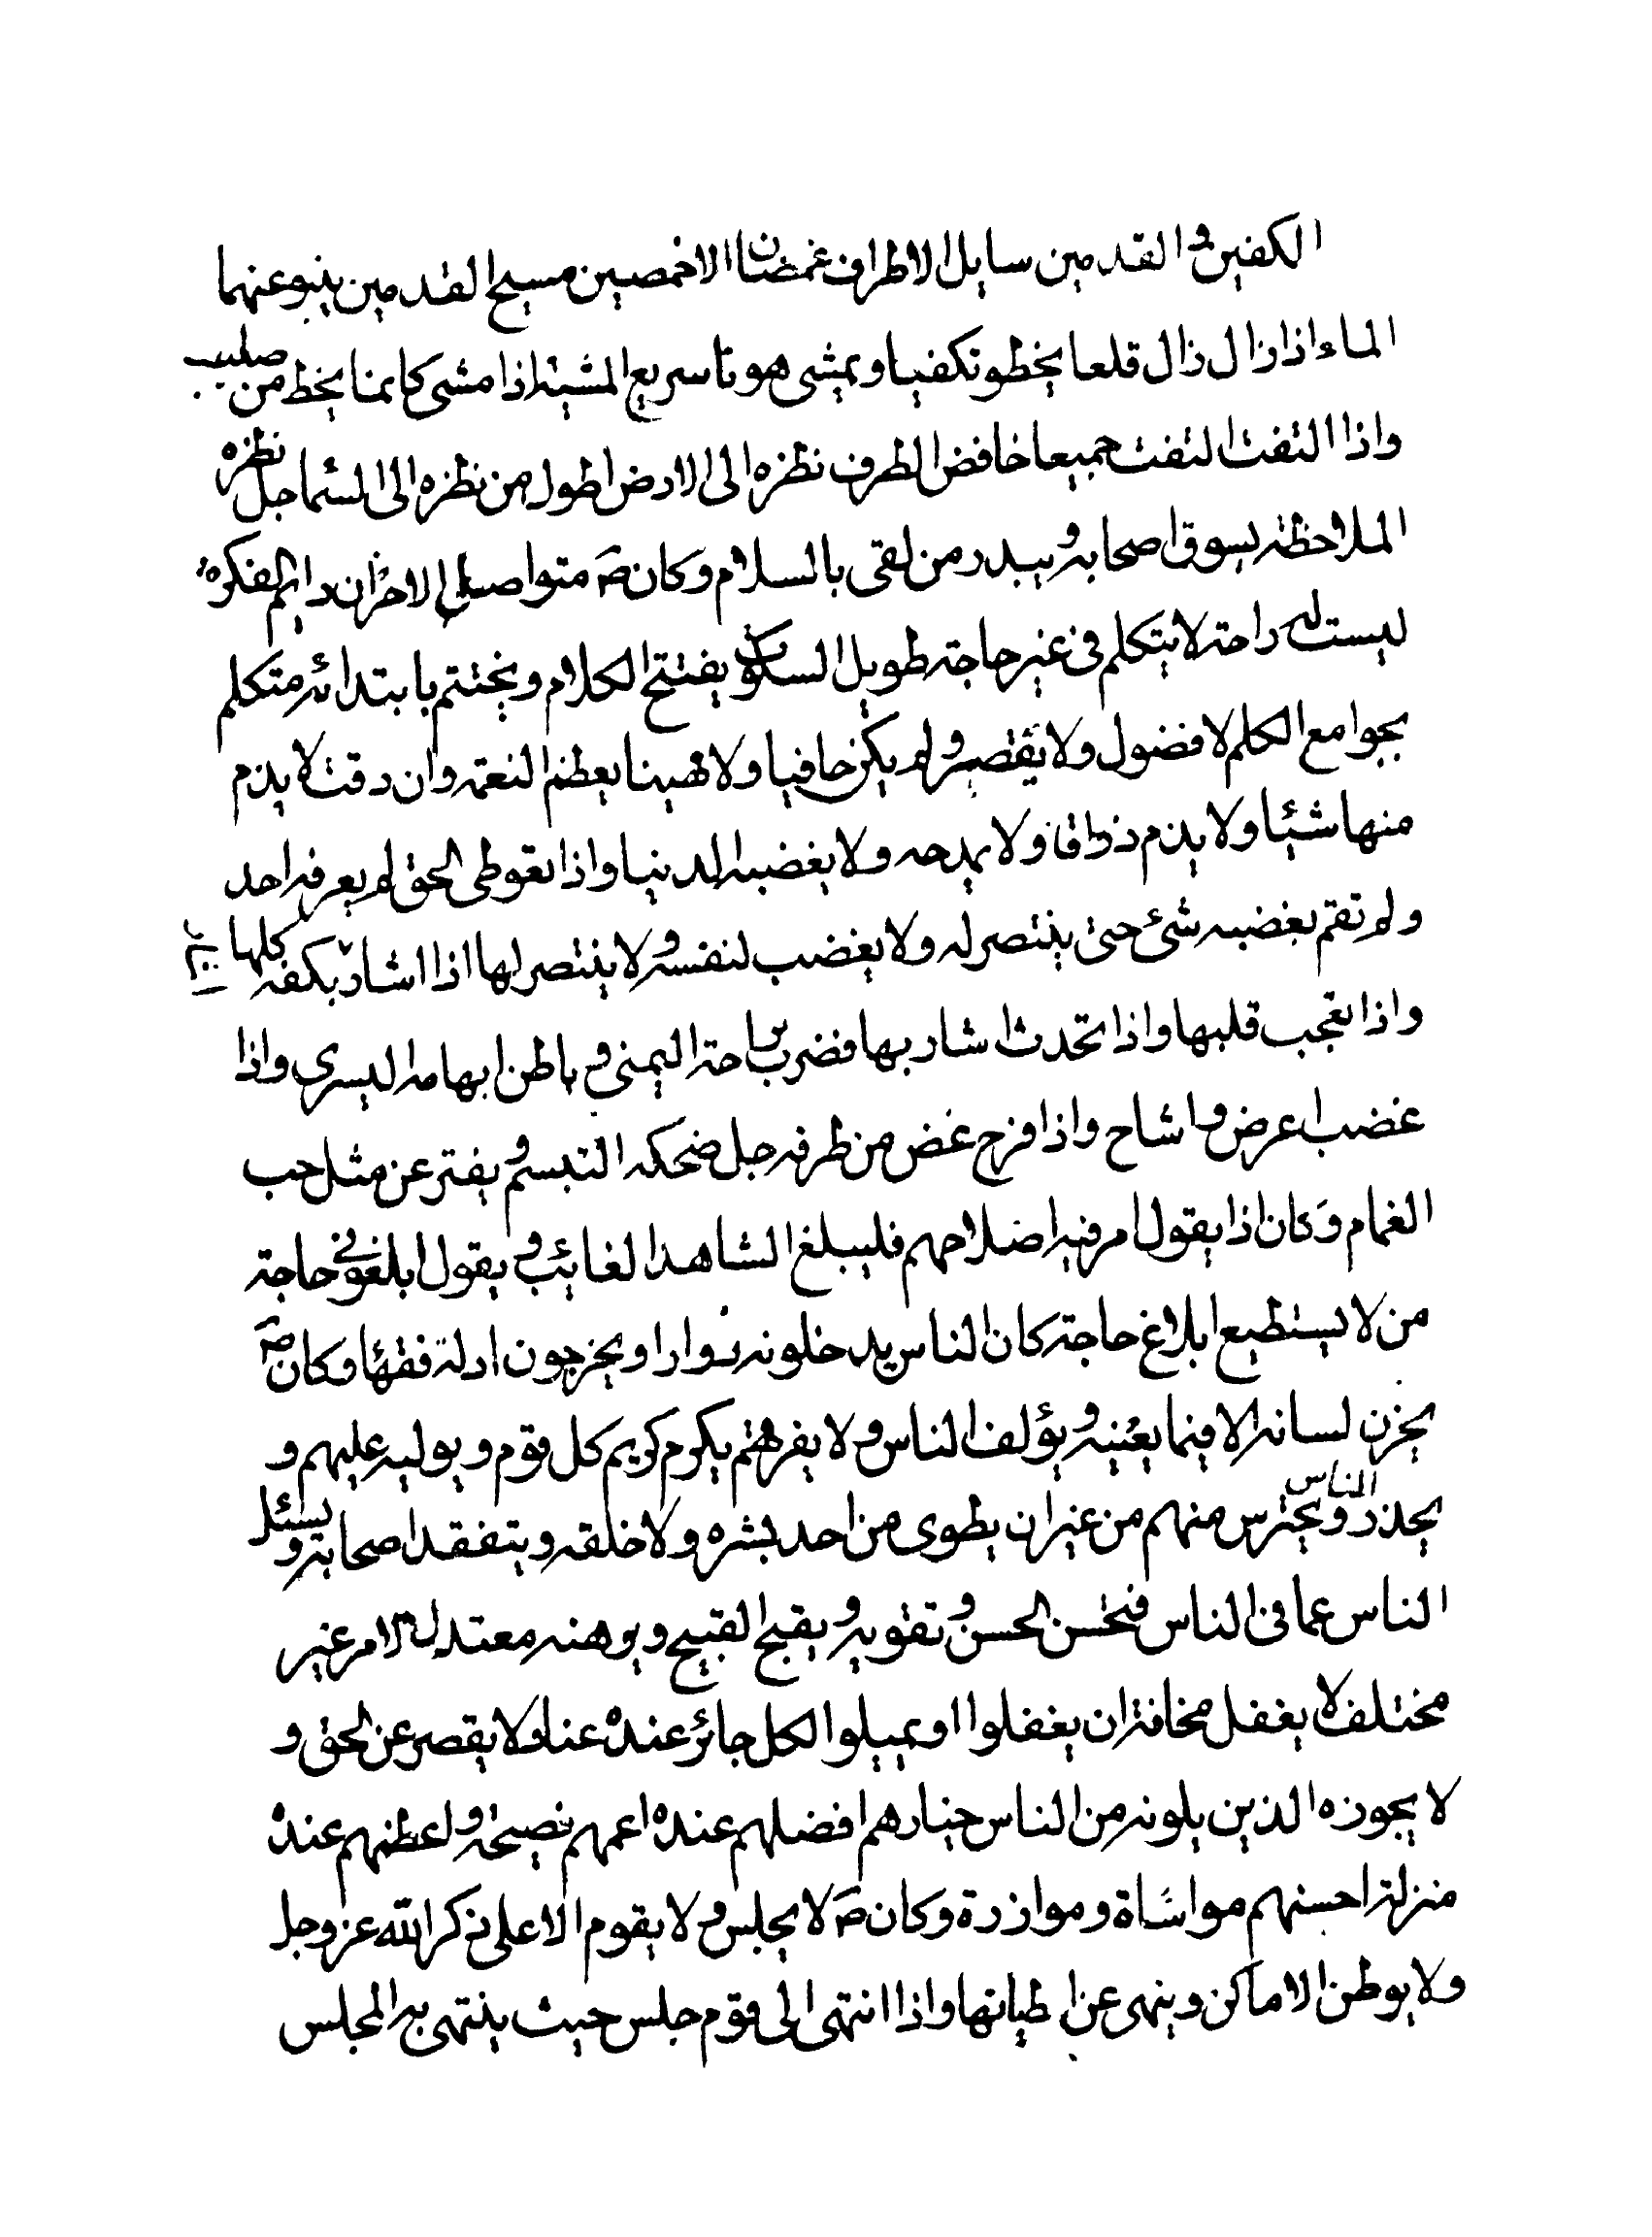 الكفين و القدمين سايل الاطراف غمضان الاخمصين مسيح القدمين ينبو عنهما
الماء اذا زال زال قلعا يخطو تكفيا و يمشى هونا سريع المشية اذا مشى كانما يخط من صليب
واذا التفت التفت جميعا خافض الطرف نظره الى الارض اطول من نظره الى السما جل نظره
الملاحظة يسوق اصحابه و يبدر من لقى بالسلام و كان ص متواصل الاحزان دايم الفكره
ليست له راحة لا يتكلم فى غير حاجة طويل السكوت يفتتح الكلام و يختتم بابتدائه متكلم
بجوامع الكلم لا فضول ولا يقصير و لم يكن خافيا ولا مهينا يعظم النعمة وان دقت لا يذم
منها شيئا ولا يذم ذواقا ولا يمدحه ولا يغضبه الدنيا واذا تعوطى الحق لم يعرفه احد
ولم تقم بغضبه شئ حتى ينتصر له ولا يغضب لنفسه و لا ينتصر لها اذا اشار بكفه كلها
واذا تعجب قلبها واذا تحدث اشار بها فضرب براحة اليمنى و باطن ابهامه اليسرى واذا
غضب اعرض و اشاح واذا فرح غض من طرفه جل ضحكه التبسم و يفتر عن مثل حب
الغمام و كان اذا يقول امر فيه اصلاحهم فليبلغ الشاهد الغائب و يقول ابلغونى حاجة
من لا يستطيع ابلاغ حاجة كان الناس يدخلونه زوارا و يخرجون ادلة فقهاا و كان ص
يخزن لسانه الا فيما يعنيه و يؤلف الناس و لا يفرقهم يكرم كريم كل قوم و يوليه عليهم و
يحذر الناس و يحترس منهم من غير ان يطوى من احد بشره ولا خلقه و يتفقد اصحابه و يسئل
الناس عما فى الناس فحسن الحسن و تقويه و يقبح القبيح و يوهنه معتدل الامر غير
مختلف لا يغفل مخافة ان يغفلوا او يميلوا لكل جائز عنده عناد ولا يقصر عن الحق و
لا يجوزه الذين يلونه من الناس خيارهم افضلهم عنده اعمهم نصيحة و اعظمهم عنده
منزلة احسنهم مواساة و موازرة و كان ص لا يجلس و لا يقوم الا على ذكر الله عز و جل
ولا يوطن الاماكن و ينهى عن ايطانها واذا انتهى الى قوم جلس حيث ينتهى به المجلس